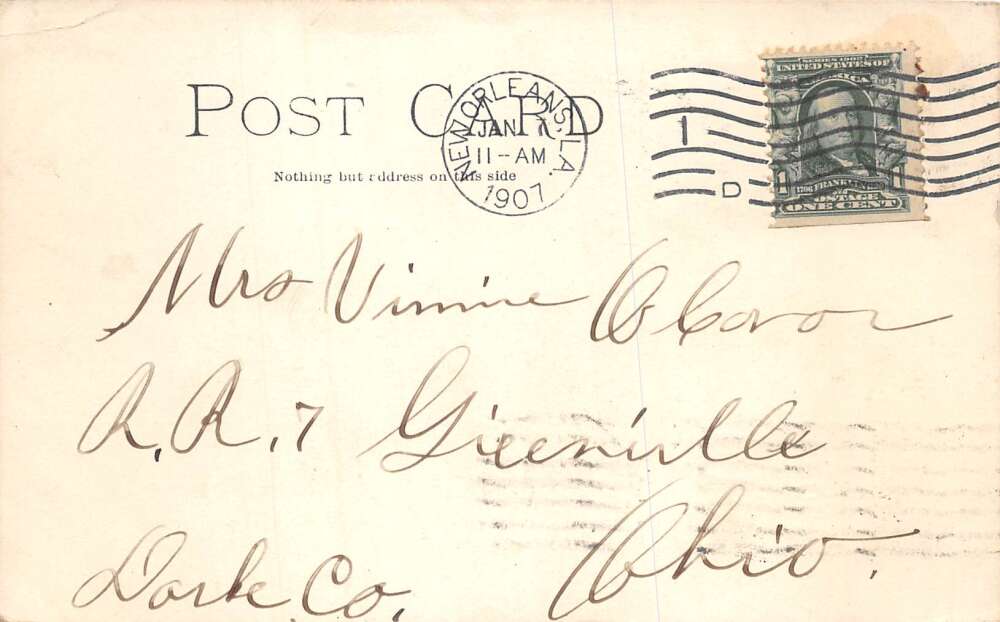 POST CARD
Nothing but address on this side
NEW ORLEANS, LA.
JAN 7
11-AM
1907
1
D
SERIES 1902
UNITED STATES OF
AMERICA
1 1
FRANKLIN
POSTAGE
ONE CENT
Mrs Vinnie
R.R. 7 Greenville
Dark Co. Ohio.